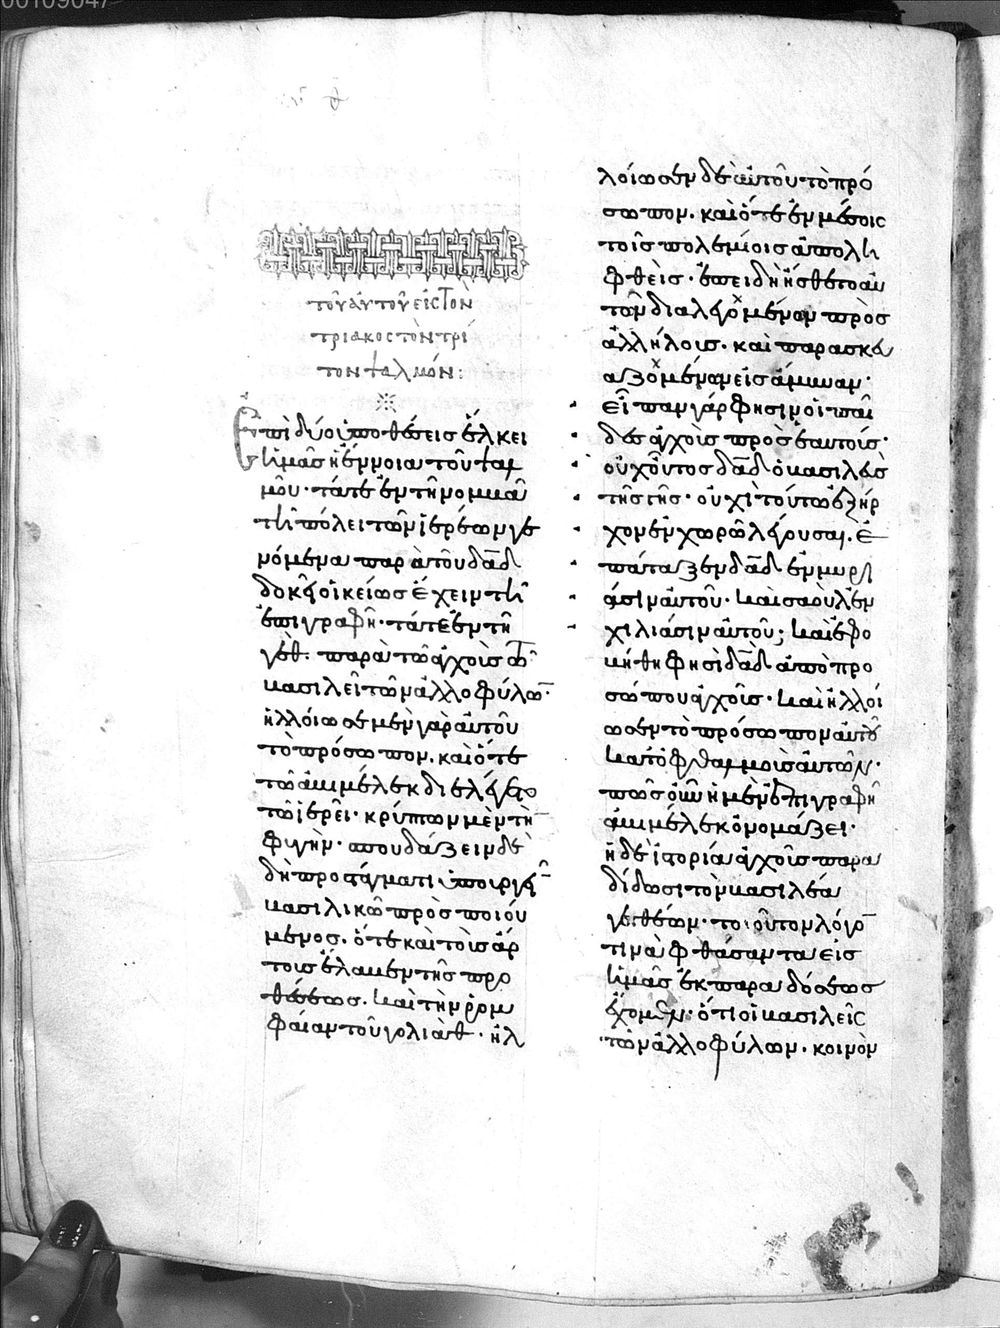 00109047
θ
τοῦ αὐτοῦ εἰς τὸν
τριακοστὸν τρί
τον ψαλμόν:
Ἐπὶ δύο ὑποθέσεις ἕλκει
ἡμᾶς ἡ ἔννοια τοῦ ψαλ
μοῦ· τά τε ἐν τῆ νομμᾶ
τῆ πόλει τῶν ἱερέων γε
νόμενα παρὰ τοῦ δαδ
δοκεῖ οἰκείως ἔχειν τῆ
ἐπιγραφῆ· τά τε ἐν τῆ
γὲθ· παρὰ τῶ ἀγχοῖς τῶ
βασιλεῖ τῶν ἀλλοφύλων·
ἠλλοίωσε μὲν γὰρ αὐτοῦ
τὸ πρόσωπον. καὶ ὅτε
τῶ ἀμιμέλεκ διελέγετο
τῶ ἱερεῖ· κρύπτων μὲν τὴν
φυγήν· σπουδάζειν δὲ
δὴ προστάγματι ὑπουργεῖν
βασιλικῶ προσποιού
μενος. ὅτε καὶ τοὺς ἄρ
τους ἔλαβεν τῆς προ
θέσεως. καὶ τὴν ῥομ
φαίαν τοῦ γολιὰθ· ἠλ
λοίωσεν δὲ αὐτοῦ τὸ πρό
σωπον. καὶ ὅτε ἐν μέσοις
τοῖς πολεμίοις ἀπολη
φθεὶς· ἐπειδὴ ἤσθετο αὐ
τῶν διαλεγομένων πρὸς
ἀλλήλους. καὶ παρασκευ
αζομένων εἰς ἄμυναν·
εἶπαν γάρ φησιν οἱ παῖ
δες ἀγχοῖς πρὸς ἑαυτούς·
οὐχ οὗτος δαδ ὁ βασιλεὺς
τῆς γῆς· οὐχὶ τούτω ἐξῆρ
χον ἐν χωρῶ λέγουσαι. ἐ
πάταξεν δαδ ἐν μυρι
άσιν αὐτοῦ. καὶ σαοὺλ ἐν
χιλιάσιν αὐτοῦ; καὶ ἐφο
βήθη φησὶ δαδ ἀπὸ προ
σώπου ἀγχοῖς. καὶ ἠλλοί
ωσεν τὸ πρόσωπον αὐτοῦ
κατ' ὀφθαλμοὺς αὐτῶν.
πῶς οὖν ἡ μὲν ἐπιγραφὴ
ἀμιμέλεκ ὀνομάζει·
ἡ δὲ ἱστορία ἀγχοῖς παρα
δίδωσι τὸν βασιλέα
γεθθέων· τοιοῦτον λόγον
τινὰ φθάσαντα εἰς
ἡμᾶς ἐκ παραδόσεως
ἔχομεν. ὅτι οἱ βασιλεῖς
τῶν ἀλλοφύλων. κοινὸν